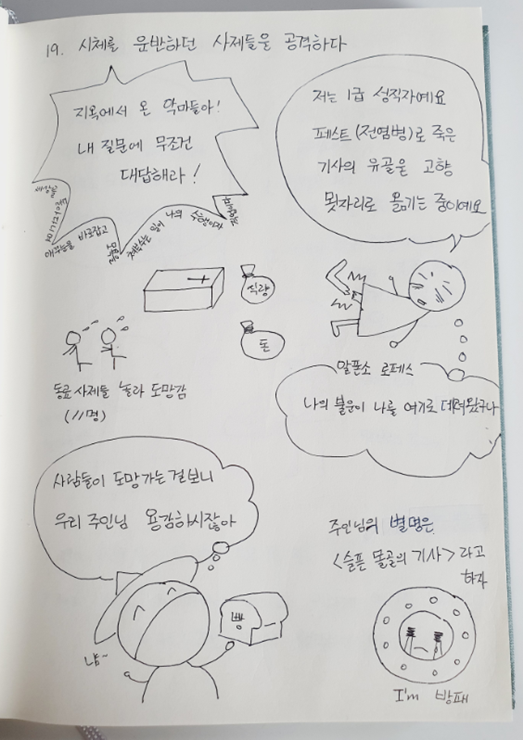 19. 시체를 운반하던 사제들을 공격하다
지옥에서 온 악마들아!
내 질문에 무조건
대답해라!
세상을
돌아다니며
매꾸눈을 바로잡고
모욕을
쳐부수는 일이 나의
수행이자
저는 1급 성직자예요
페스트(전염병)로 죽은
기사의 유골을 고향
묫자리로 옮기는 중이예요
식량
돈
동료 사제들 놀라 도망감
(11명)
알폰소 로페스
나의 불운이 나를 여기로 데려왔구나
사람들이 도망가는 걸보니
우리 주인님 용감하시잖아
빵
냠~
주인님의 별명은
<슬픈 몰골의 기사>라고
하자
I'm 방패